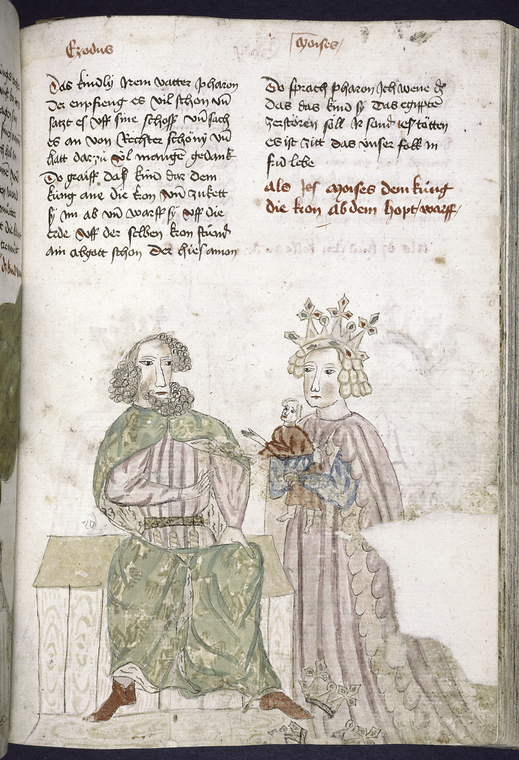 Exodus
Moises
Das kindly Irem vatter pharon
Der empfieng es vil schon vn̄
satzt es vff sine schoß vn̄ sach
es an von Rechter schöny vn̄
hatt darzu vil mangen gedank
Do graiff daß kind dar dem
küng ane die kron vn̄ zukett
sy im ab vn̄ warff sy vff die
erde vff der selben kron stund
ain abgott schon der hies amon
Do sprach pharon Ich wene
das das kind sy das egipten
zerstören söll Ir sond es tötten
es ist zitt das vnser folk in
frid lebe
Als moises dem küng
die kron ab dem hopt warff